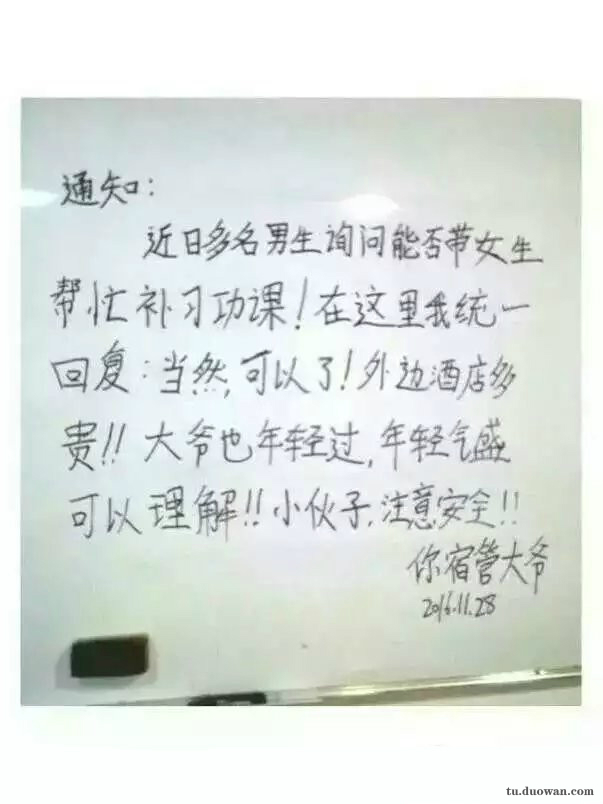 通知：
近日多名男生询问能否带女生
帮忙补习功课！在这里我统一
回复：当然，可以了！外边酒店多
贵！！大爷也年轻过，年轻气盛
可以理解！！小伙子，注意安全！！
你宿管大爷
2016.11.28
tu.duowan.com